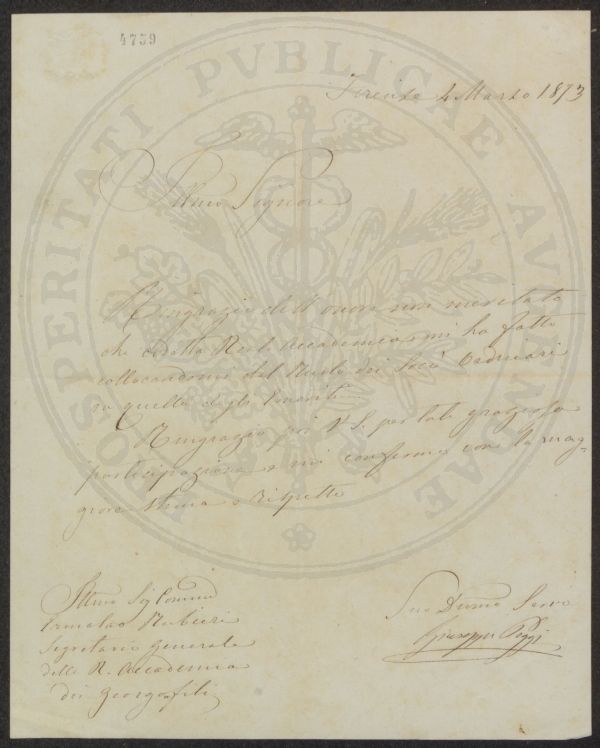 4739
PROSPERITATI PUBLICAE AUGENDAE
Firenze 4 Marzo 1873
Illmo Signore
Ringrazio dell'onore non meritato
che codesta Reale Accademia mi ha fatto
collocandomi dal Ruolo dei Socj Ordinari
in quello degli Emeriti
Ringrazio poi V. S. per tale graziosa
partecipazione e mi confermo con la mag-
giore stima e rispetto
Suo Devmo Servo
Giuseppe Poggi
Illmo Sig Comm
Ermolao Rubieri
Segretario Generale
della R. Accademia
dei Georgofili